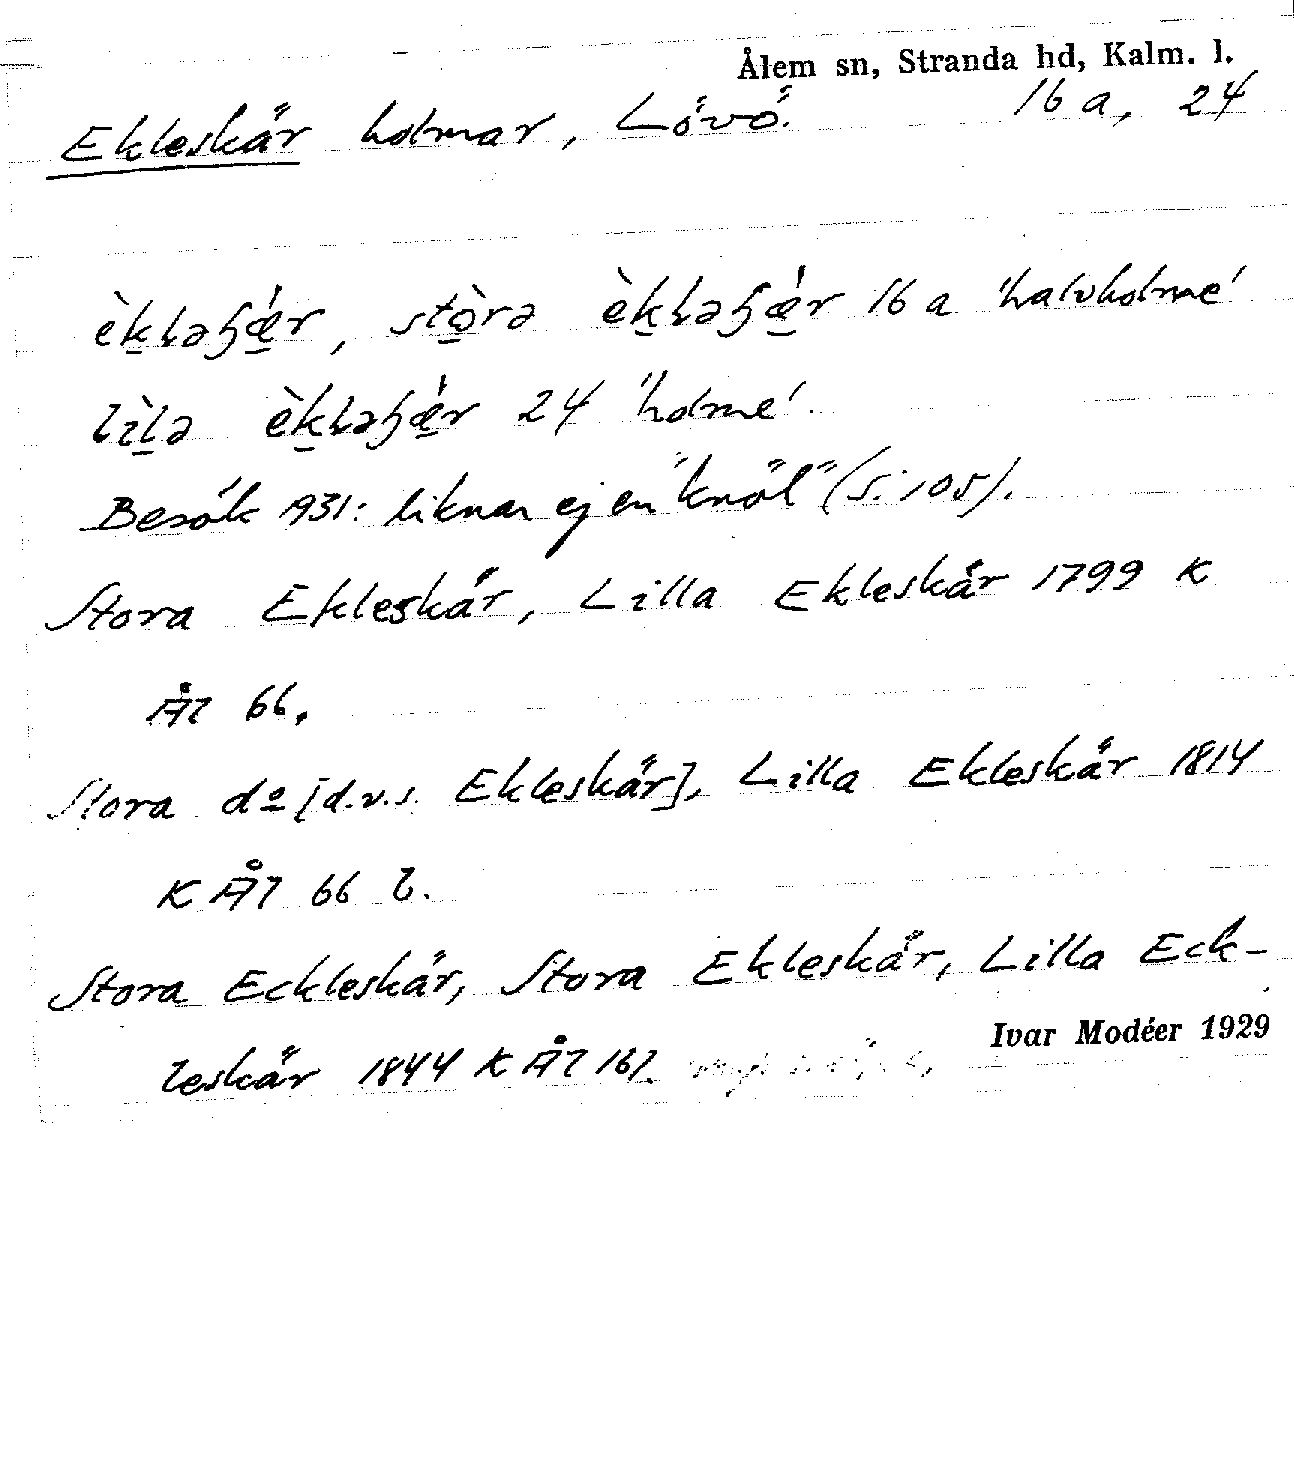 Ålem sn, Stranda hd, Kalm. l.
Ekleskär holmar, Lövö. 16 a, 24
èk̲ləɧǽ̲r, stò̲rə èk̲ləɧǽ̲r 16 a 'halvholme'
lìl̲ə èk̲ləɧǽ̲r 24 'holme'.
Besök 1931: liknar ej en "knöl" (s. 105).
Stora Ekleskär, Lilla Ekleskär 1799 K
Ål 66.
Stora dº [d.v.s. Ekleskär], Lilla Ekleskär 1814
K Ål 66 b.
Stora Eckleskär, Stora Ekleskär, Lilla Eck-
leskär 1844 K Ål 161.
Ivar Modéer 1929